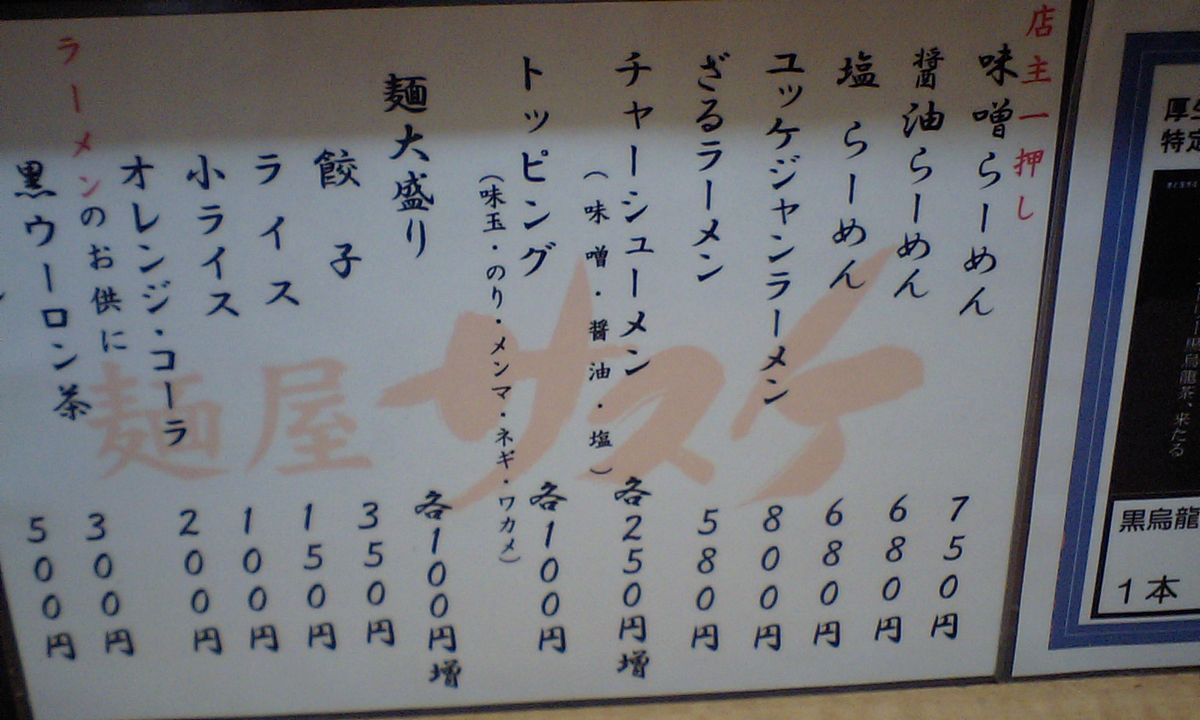 店主一押し
味噌らーめん 750円
醤油らーめん 680円
塩らーめん 680円
ユッケジャンラーメン 800円
ざるラーメン 580円
チャーシューメン 各250円増
(味噌・醤油・塩)
トッピング 各100円
(味玉・のり・メンマ・ネギ・ワカメ)
麺大盛り 各100円増
餃子 350円
ライス 150円
小ライス 100円
オレンジ・コーラ 200円
ラーメンのお供に
黒ウーロン茶 300円
500円
麺屋 サスケ
特定
黒烏龍茶、来たる
黒烏龍
1本